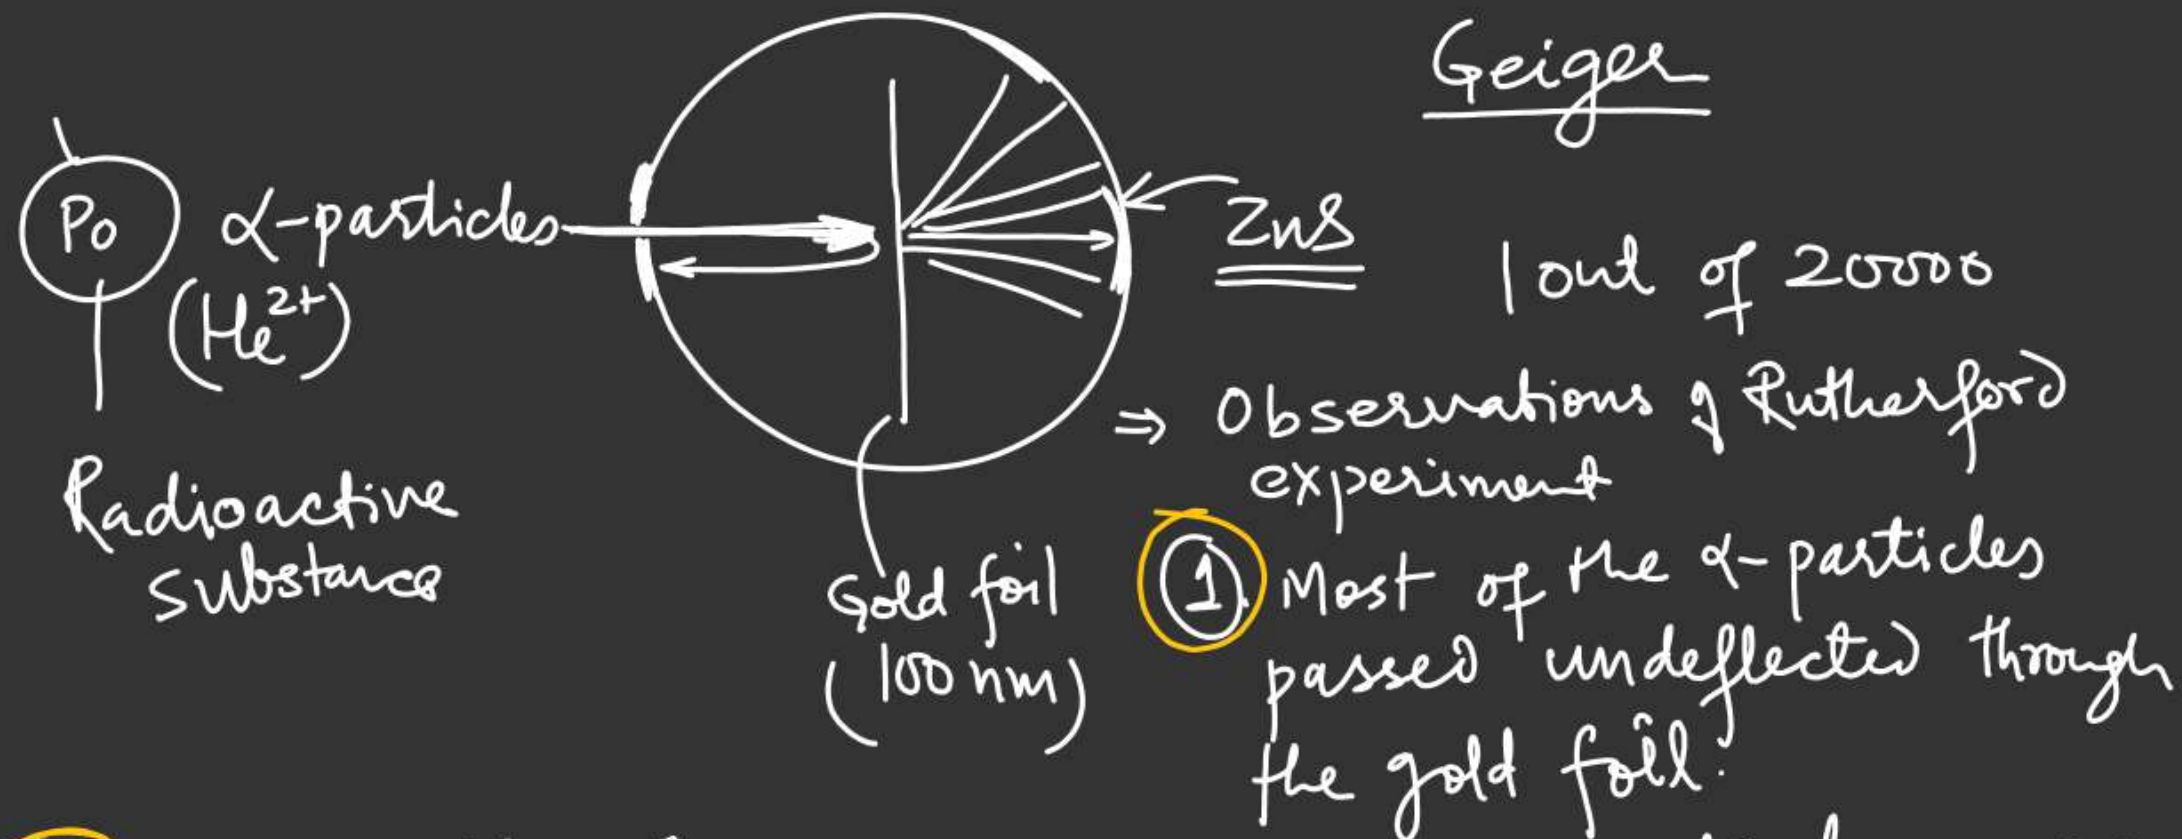 Geiger
Po
α-particles
(He²⁺)
ZnS
1 out of 20000
Radioactive
substance
Gold foil
(100 nm)
⇒ Observations of Rutherford
experiment
① Most of the α-particles
passed undeflected through
the gold foil.